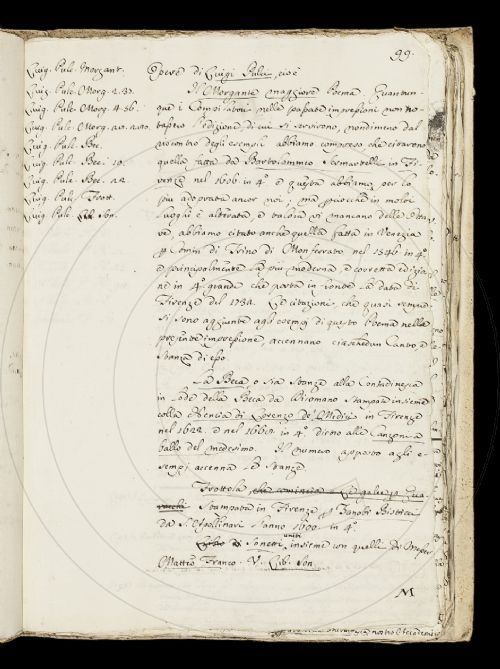 99.
Luig. Pulc. Morgant.
Luig. Pulc. Morg. 2. 33.
Luig. Pulc. Morg. 4. 56.
Luig. Pulc. Morg. 20. 220.
Luig. Pulc. Bec.
Luig. Pulc. Bec. 10.
Luig. Pulc. Bec. 22.
Luig. Pulc. Frott.
Luig. Pulc. Lib. Son.
Opere di Luigi Pulci, cioè
Il Morgante maggiore Poema. Quantun-
que i Compilatori nelle passate impressioni non no-
tassero l'edizione di cui si servirono, nondimeno dal
riscontro degli esempj abbiamo compreso che citarono
quella fatta da Bartolommeo Sermartelli in Fi-
renze nel 1606 in 4.° e questa abbiamo per lo
più adoprata ancor noi; ma perchè in molti
luoghi è alterata, e talora vi mancano delle Otta-
ve, abbiamo citato anche quella fatta in Venezia
p Comin di Trino di Monferrato nel 1546 in 4.°
e principalmente la più moderna, e corretta edizio-
ne in 4.° grande che porta in fronte la data di
Firenze del 1732. Le citazioni, che quasi sempre
si sono aggiunte agli esempj di questo Poema nella
presente impressione, accennano ciaschedun Canto, e
Stanza di esso.
La Beca, o sia Stanze alla Contadinesca
in lode della Beca da Dicomano stampata insieme
colla Nencia di Lorenzo de' Medici in Firenze
nel 1622. e nel in 4.° dietro alle Canzoni a
ballo del medesimo. Il numero apposto agli e-
sempj accenna la Stanza
Frottola, che comincia
Stampata in Firenze p Zanobi Bisticci
da S. Apollinari l'anno 1600. in 4.°
Libro di Sonetti uniti insieme con quelli di Messer
Matteo Franco. V. Lib. Son.
M